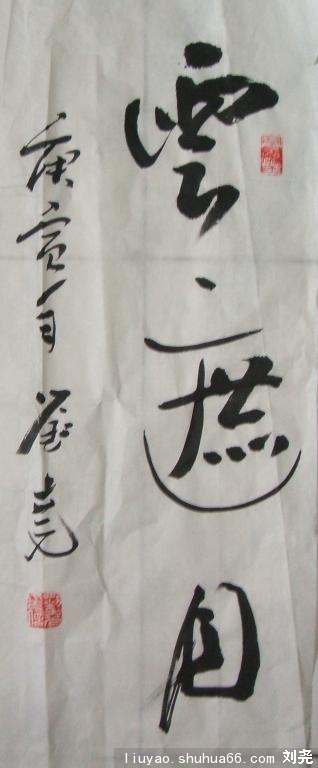 雲遮月
庚寅 劉堯
liuyao.shuhua66.com 刘尧